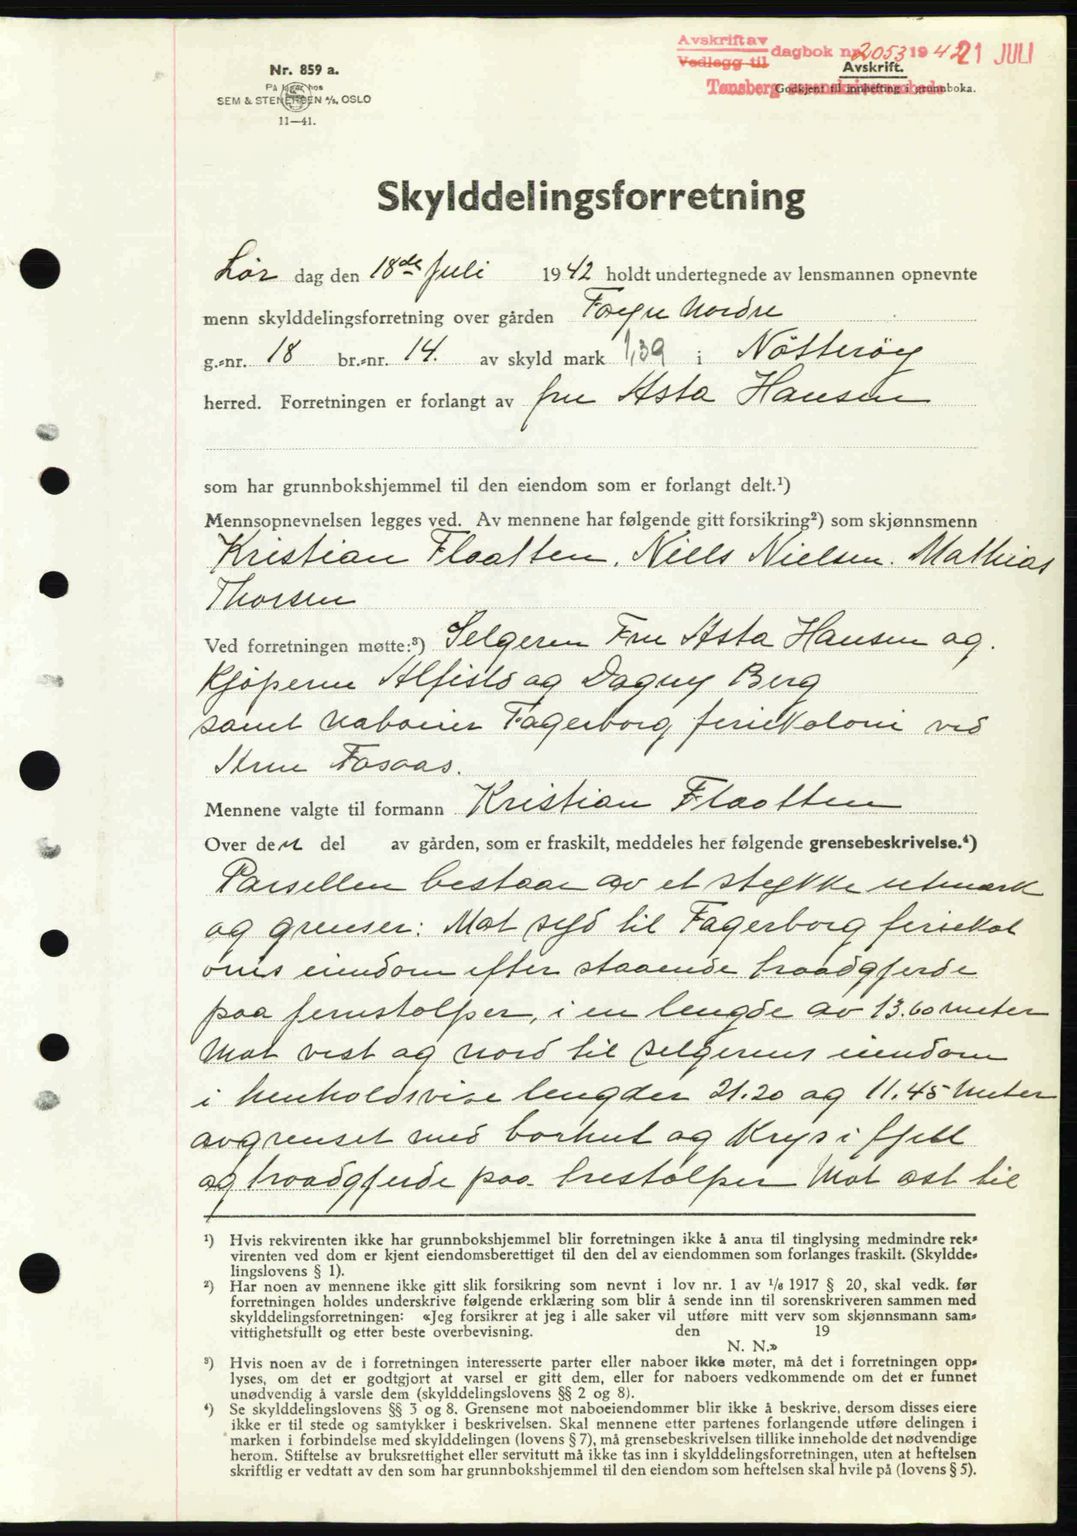 Avskrift av
Vedlegg til
dagbok nr. 2053 1942 21 JULI
Tønsberg sorenskriverembede
Nr. 859 a.
På lager hos
SEM & STENERSEN A/S, OSLO
11—41.
Avskrift.
Godkjent til innhefting i grunnboka.
Skylddelingsforretning
Lør dag den 18de Juli 1942 holdt undertegnede av lensmannen opnevnte
menn skylddelingsforretning over gården Føyn Nordre
g.-nr. 18 br.-nr. 14. av skyld mark 1,39 i Nøtterøy
herred. Forretningen er forlangt av fru Asta Hansen
som har grunnbokshjemmel til den eiendom som er forlangt delt.¹)
Mennsopnevnelsen legges ved. Av mennene har følgende gitt forsikring²) som skjønnsmenn
Kristian Flaatten. Niels Nielsen. Mathias
Thorsen
Ved forretningen møtte:³) Selgeren Fru Asta Hansen og.
Kjøperne Alfild og Dagny Berg
samt naboeier Fagerborg feriekoloni ved
Arne Fosaas.
Mennene valgte til formann Kristian Flaatten
Over den del av gården, som er fraskilt, meddeles her følgende grensebeskrivelse.⁴)
Parsellen bestaar av et stykke utmark
og grenser: Mot syd til Fagerborg feriekol
onis eiendom efter staaende braadgjerde
paa jernstolper, i en lengde av 13.60 meter
Mot vest og nord til selgerens eiendom
i henholdsvise lengder 21.20 og 11.45 meter
avgrenset med borhul og Krys i fjell
og braadgjerde paa trestolper Mot øst til
¹) Hvis rekvirenten ikke har grunnbokshjemmel blir forretningen ikke å anta til tinglysing medmindre rek-
virenten ved dom er kjent eiendomsberettiget til den del av eiendommen som forlanges fraskilt. (Skyldde-
lingslovens § 1).
²) Har noen av mennene ikke gitt slik forsikring som nevnt i lov nr. 1 av 1/6 1917 § 20, skal vedk. før
forretningen holdes underskrive følgende erklæring som blir å sende inn til sorenskriveren sammen med
skylddelingsforretningen: «Jeg forsikrer at jeg i alle saker vil utføre mitt verv som skjønnsmann sam-
vittighetsfullt og etter beste overbevisning. den 19
N. N.»
³) Hvis noen av de i forretningen interesserte parter eller naboer ikke møter, må det i forretningen opp-
lyses, om det er godtgjort at varsel er gitt dem, eller for naboers vedkommende om det er funnet
unødvendig å varsle dem (skylddelingslovens §§ 2 og 8).
⁴) Se skylddelingslovens §§ 3 og 8. Grensene mot naboeiendommer blir ikke å beskrive, dersom disses eiere
ikke er til stede og samtykker i beskrivelsen. Skal mennene etter partenes forlangende utføre delingen i
marken i forbindelse med skylddelingen (lovens § 7), må grensebeskrivelsen tillike inneholde det nødvendige
herom. Stiftelse av bruksrettighet eller servitutt må ikke tas inn i skylddelingsforretningen, uten at heftelsen
skriftlig er vedtatt av den som har grunnbokshjemmel til den eiendom som heftelsen skal hvile på (lovens § 5).